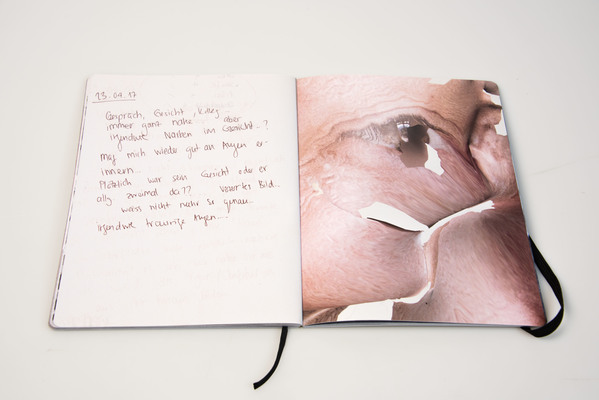 13.04.17
Gespräch, Gesicht, kurz -
immer ganz nahe... aber
irgendwie Narben im Gesicht..?
mag mich wieder gut an Augen er-
innern...
Plötzlich war sein Gesicht oder er
alls zweimal da?? Verwirrtes Bild..
weiss nicht mehr so genau..
irgendwie traurige Augen...